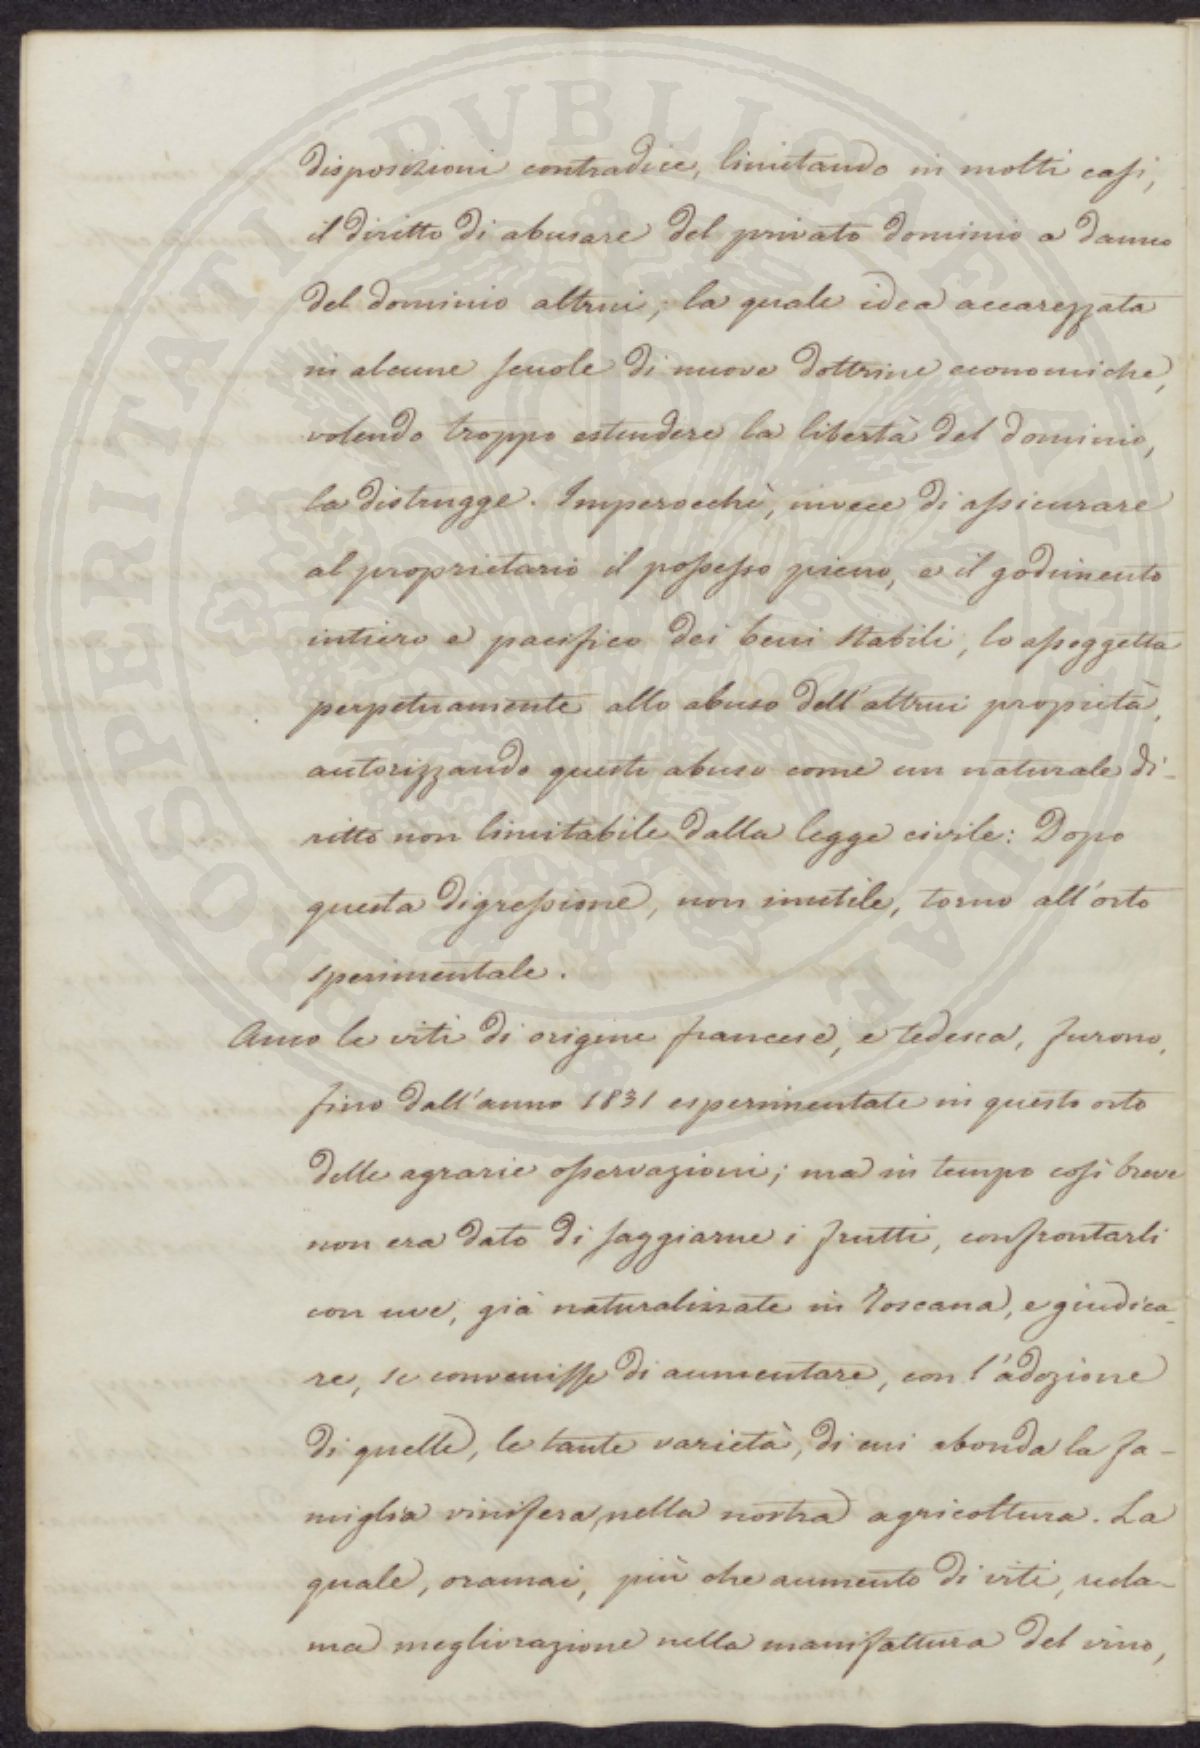 disposizioni contradice, limitando in molti casi,
il diritto di abusare del privato dominio a danno
del dominio altrui; la quale idea accarezzata
in alcune scuole di nuove dottrine economiche,
volendo troppo estendere la libertà del dominio,
la distrugge. Imperocchè, invece di assicurare
al proprietario il possesso pieno, e il godimento
intiero e pacifico dei beni stabili, lo assoggetta
perpetuamente allo abuso dell'altrui proprietà,
autorizzando questo abuso come un naturale di-
ritto non limitabile dalla legge civile: Dopo
questa digressione, non inutile, torno all'orto
sperimentale.
Anco le viti di origine francese, e tedesca, furono,
fino dall'anno 1831 esperimentate in questo orto
delle agrarie osservazioni; ma in tempo così breve
non era dato di saggiarne i frutti, confrontarli
con uve, già naturalizzate in Toscana, e giudica-
re, se convenisse di aumentare, con l'adozione
di quelle, le tante varietà, di cui abonda la fa-
miglia vinifera, nella nostra agricoltura. La
quale, oramai, più che aumento di viti, recla-
ma megliorazione nella manifattura del vino,
PROSPERITATI PUBLICAE AUGENDAE